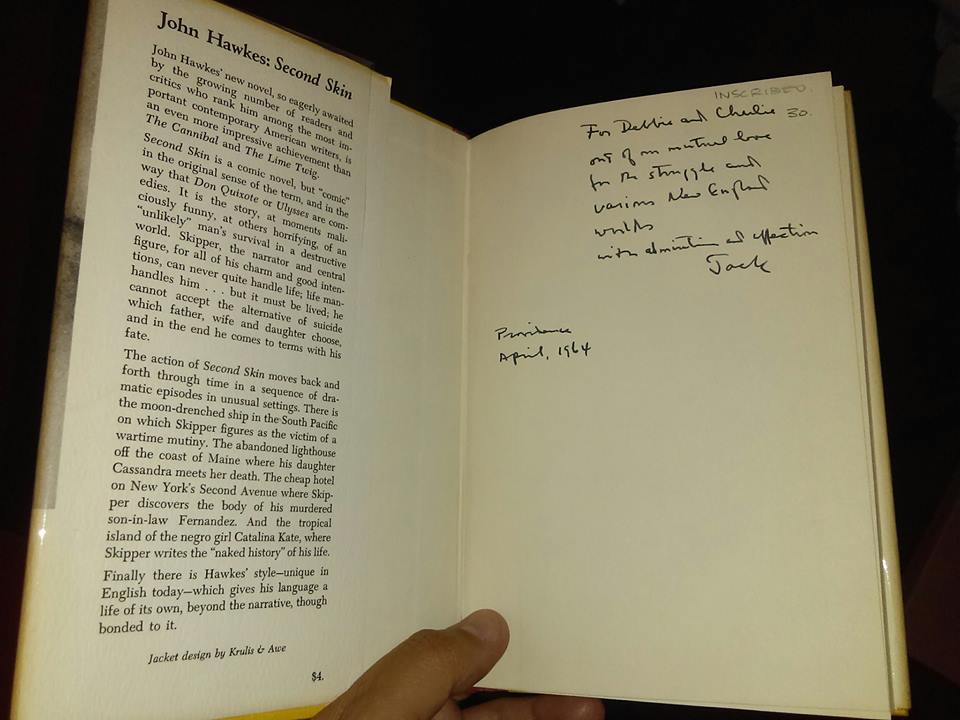 John Hawkes: Second Skin
John Hawkes' new novel, so eagerly awaited
by the growing number of readers and
critics who rank him among the most im-
portant contemporary American writers, is
an even more impressive achievement than
The Cannibal and The Lime Twig.
Second Skin is a comic novel, but "comic"
in the original sense of the term, and in the
way that Don Quixote or Ulysses are com-
edies. It is the story, at moments mali-
ciously funny, at others horrifying, of an
"unlikely" man's survival in a destructive
world. Skipper, the narrator and central
figure, for all of his charm and good inten-
tions, can never quite handle life; life man-
handles him . . . but it must be lived; he
cannot accept the alternative of suicide
which father, wife and daughter choose,
and in the end he comes to terms with his
fate.
The action of Second Skin moves back and
forth through time in a sequence of dra-
matic episodes in unusual settings. There is
the moon-drenched ship in the South Pacific
on which Skipper figures as the victim of a
wartime mutiny. The abandoned lighthouse
off the coast of Maine where his daughter
Cassandra meets her death. The cheap hotel
on New York's Second Avenue where Skip-
per discovers the body of his murdered
son-in-law Fernandez. And the tropical
island of the negro girl Catalina Kate, where
Skipper writes the "naked history" of his life.
Finally there is Hawkes' style—unique in
English today—which gives his language a
life of its own, beyond the narrative, though
bonded to it.
Jacket design by Krulis & Awe
$4.
INSCRIBED.
30.
For Debbie and Charlie
out of our mutual love
for the struggle and
various New England
worlds
with admiration and affection
Jack
Providence
April, 1964